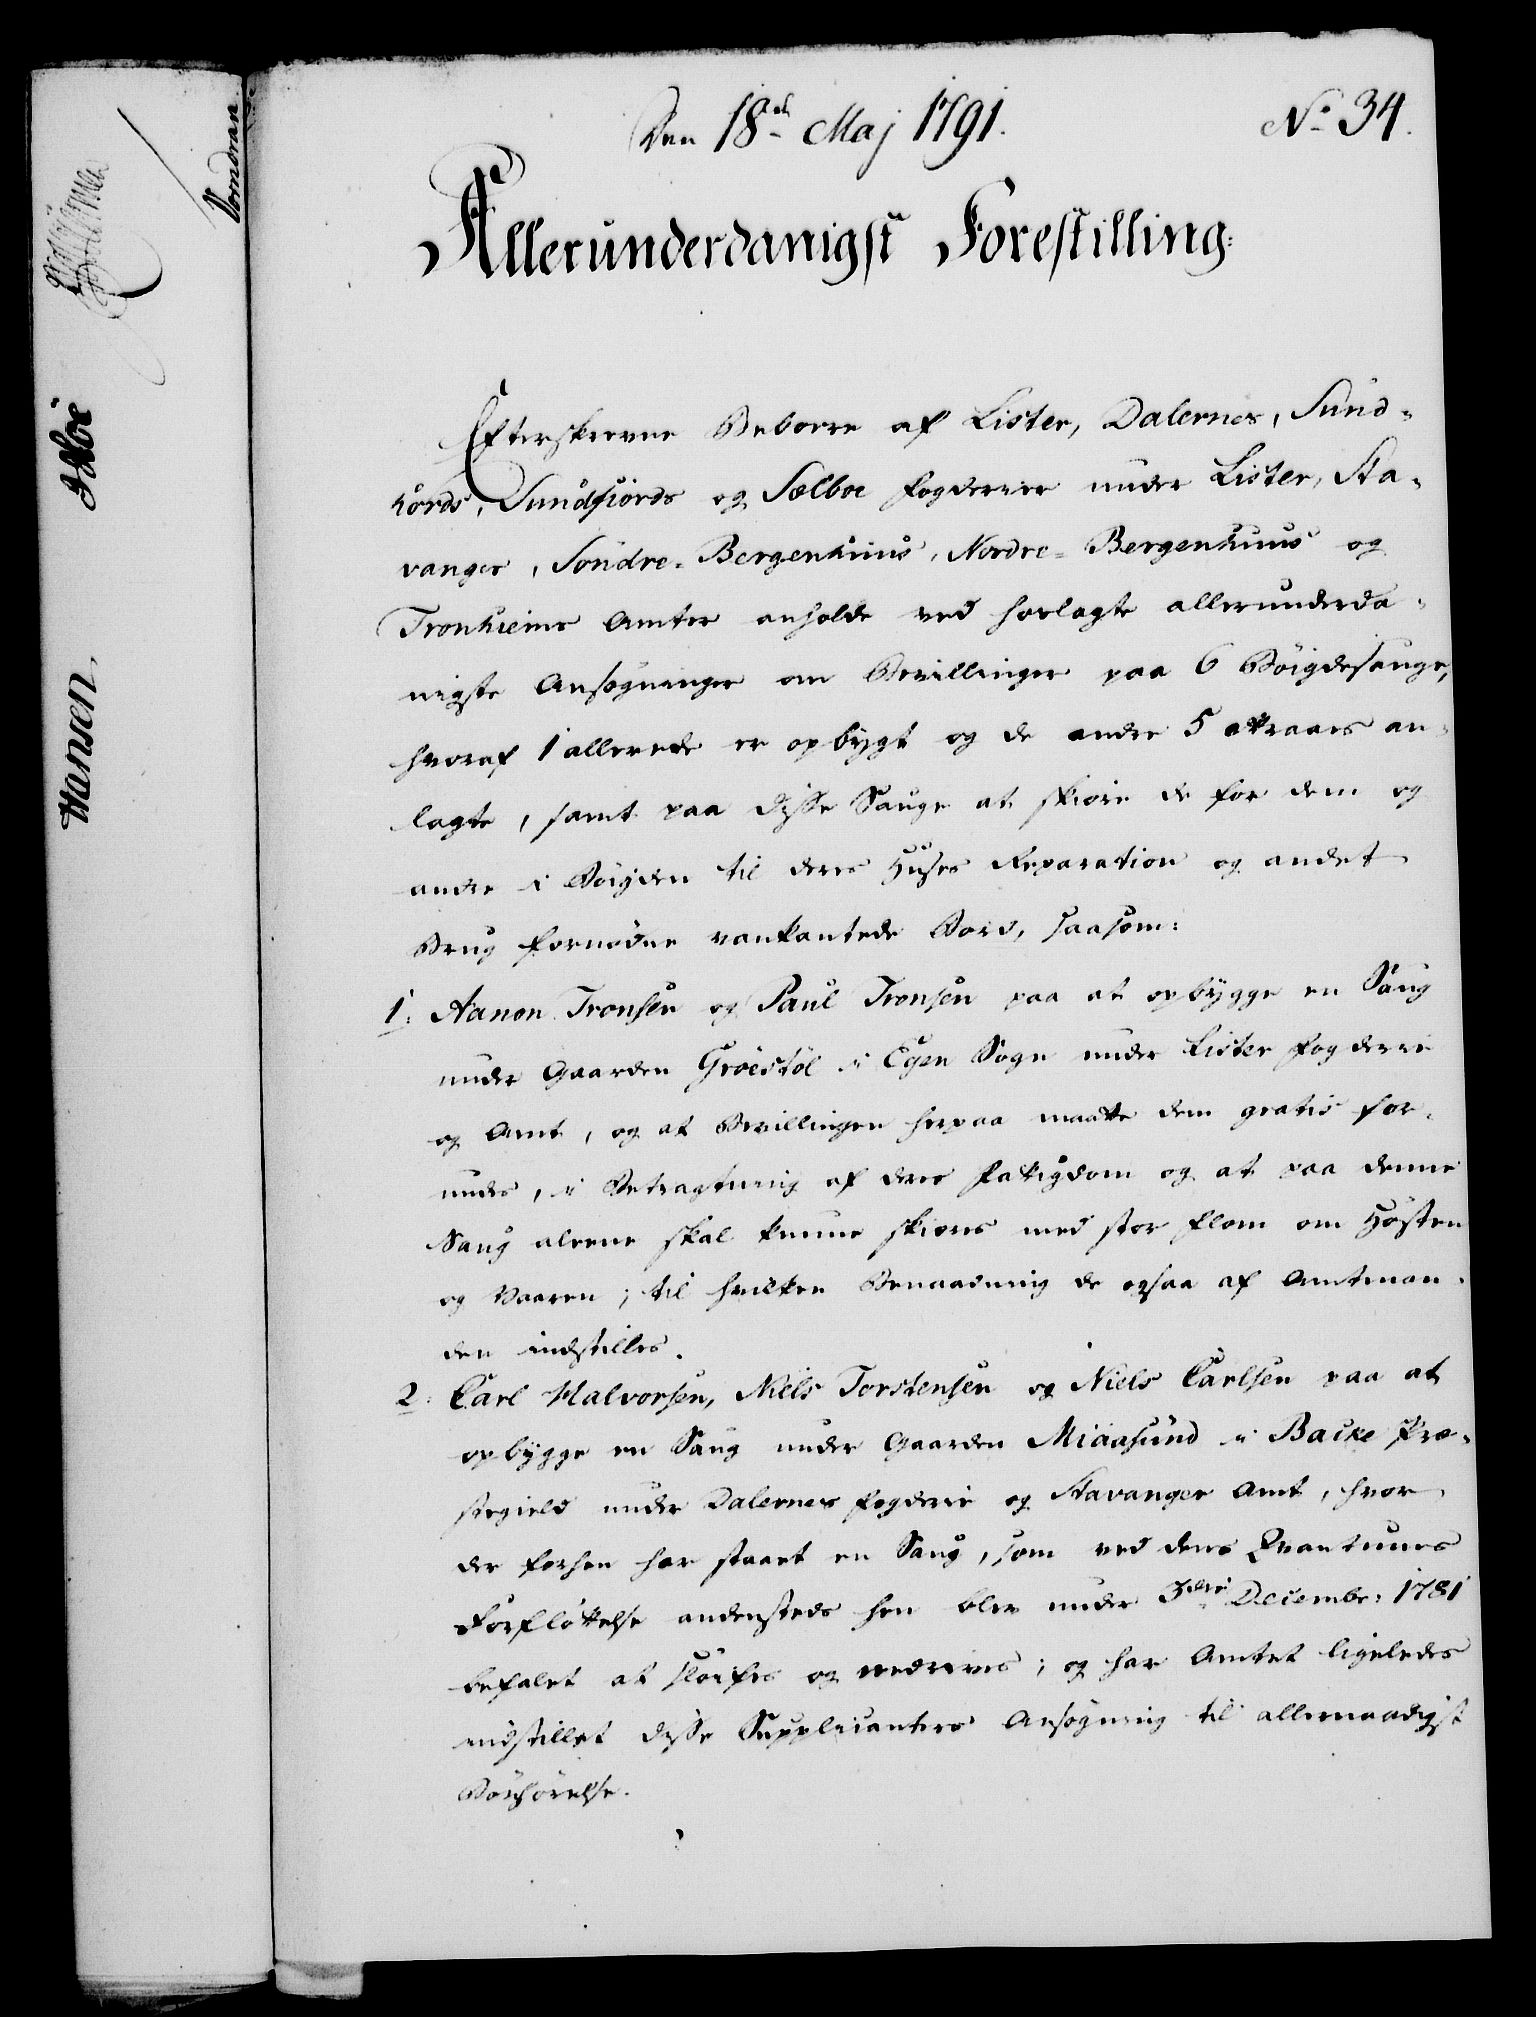 Den 18de Maj 1791.
No 34.
Allerunderdanigst Forestilling:
Efterskrevne Beboere af Lister, Dalernes, Sund-
hords, Sundfiords og Selboe Fogderier under Lister, Sta-
vanger, Söndre-Bergenhuus, Nordre-Bergenhuus og
Tronhiems Amter anholde ved hoslagte allerunderda-
nigste Ansøgninger om Bevillinger paa 6 Böigdesauge,
hvoraf 1 allerede er opbygt og de andre 5 attraaes an-
lagte, samt paa disse Sauge at skiære de for dem og
andre i Böigden til deres Huses Reparation og andet
Brug fornödne vankantede Bord, saasom:
1: Aanon Tronsen og Paul Tronsen paa at opbygge en Saug
under Gaarden Gröestöl i Egen Sogn under Lister Fogderie
og Amt, og at Bevillingen herpaa maatte dem gratis for-
undes, i Betragtning af deres Fattigdom og at paa denne
Saug aleene skal kunne skiæres med stor flom om Hösten
og Vaaren; til hvilken Benaadning de ogsaa af Amtman-
den indstilles.
2: Carl Halvorsen, Niels Torstensen og Niels Carlsen paa at
opbygge en Saug under Gaarden Miaasund i Backe Præ-
stegield under Dalernes Fogderie og Stavanger Amt, hvor
der forhen har staaet en Saug, som ved dens Qvantums
Forflöttelse andensteds hen blev under 3die Decembr: 1781
befalet at slöifes og nedrives; og har Amtet ligeledes
indstillet disse Supplicanters Ansögning til allernaadigst
Bönhörelse.
Hansen.
Vormdran